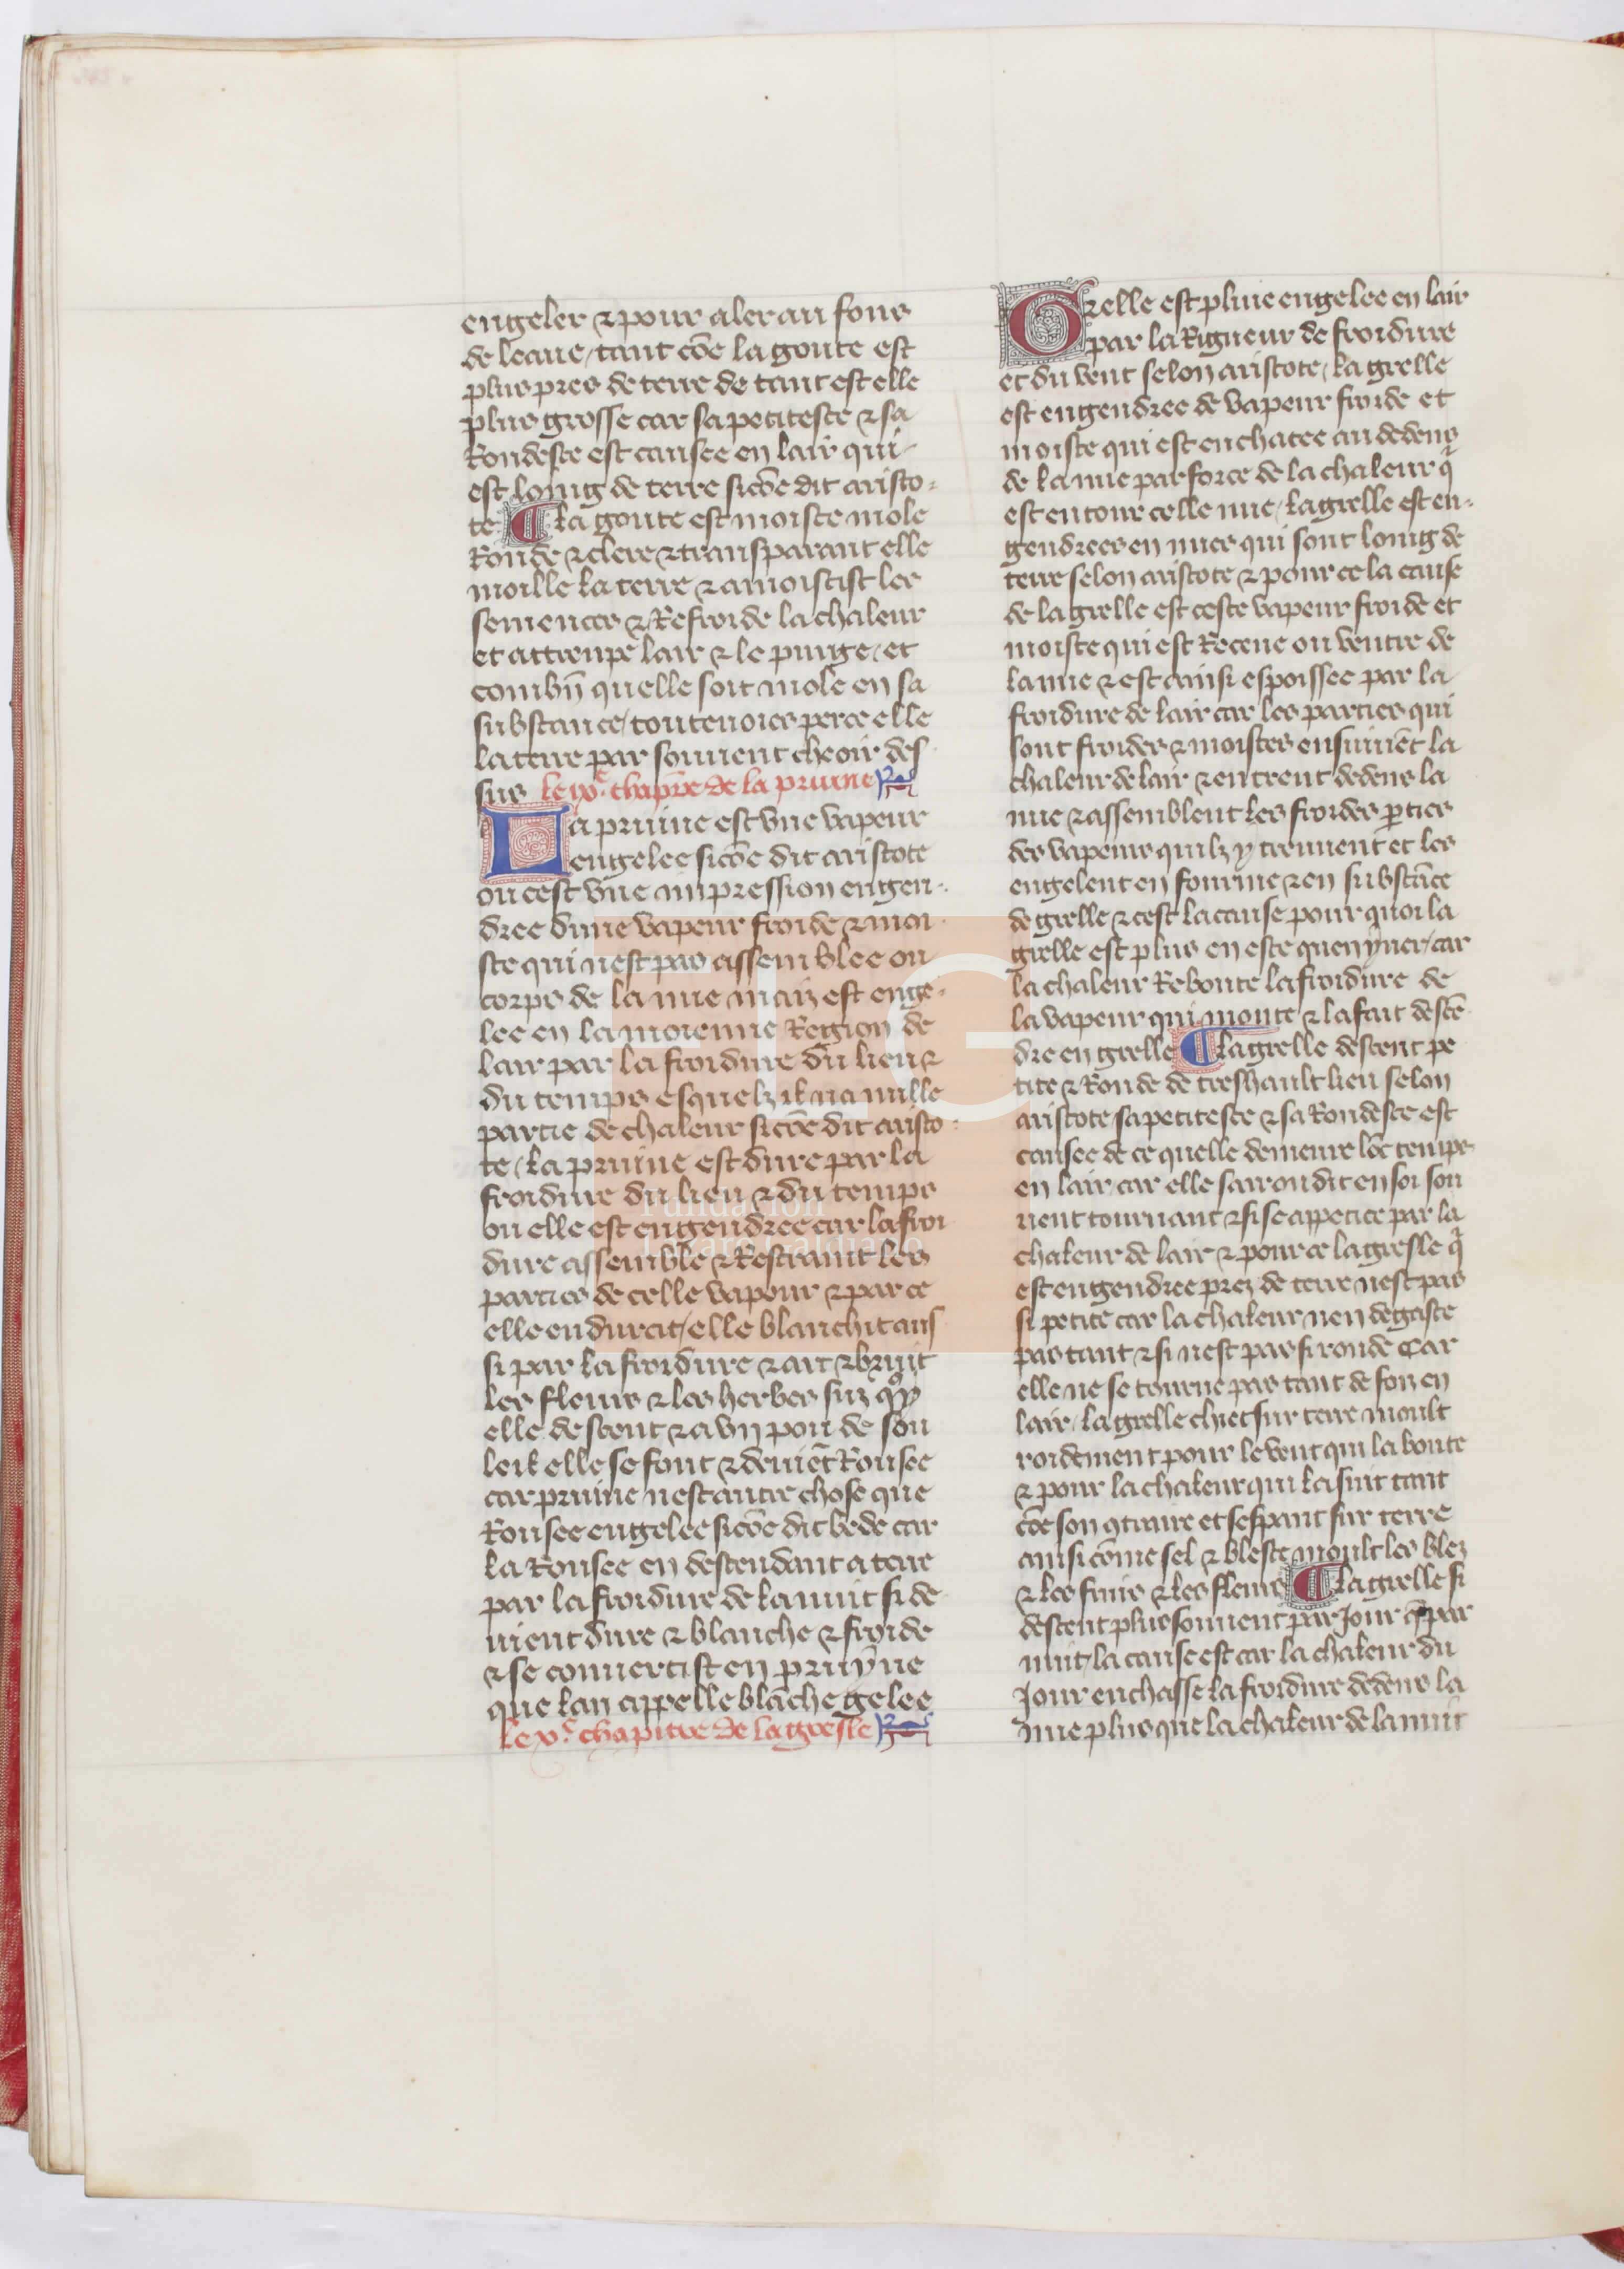 engeler ⁊ pour aler au fons
de leaue / tant cõe la goute est
plus pres de terre de tant est elle
plus grosse car sa petitesce ⁊ sa
Rondesce est causee en lair qui
est loing de terre sicõe dit aristo-
te ¶ la goute est moiste mole
Ronde ⁊ clere ⁊ transparant elle
moille la terre ⁊ amoistist les
semences ⁊ Refroide la chaleur
et attrempe lair ⁊ le purge / et
combñ quelle soit mole en sa
substance / toutenoies perce elle
la terre par souuent cheoir des
sus le ix.e chapr̃e de la pruine
La pruine est vne vapeur
engelee sicõe dit aristote
ou cest vne impression engen-
dree dune vapeur froide ⁊ moi-
ste qui nest pas assemblee ou
corps de la nue maiz est enge-
lee en la moienne Region de
lair par la froidure du lieu ⁊
du temps esquelz il na nulle
partie de chaleur sicõe dit aristo-
te / la pruine est dure par la
froidure du lieu ⁊ du temps
ou elle est engendree car la froi
dure assemble ⁊ Restraint les
parties de celle vapour ⁊ par ce
elle endurcit / elle blanchit aus
si par la froidure ⁊ art ⁊ bruit
les fleurs ⁊ les herbes suz quoy
elle descent ⁊ a vn pou de sou
leil elle se font ⁊ deuiẽt Rousee
car pruine nest autre chose que
Rousee engelee sicõe dit bede car
la Rousee en descendant a terre
par la froidure de la nuit si de
uient dure ⁊ blanche ⁊ froide
⁊ se conuertist en pruyne
que lan appelle blãche gelee
le x.e chapitre de la gresle
Grelle est pluie engelee en lair
par la Rigueur de froidure
et du vent selon aristote / la grelle
est engendree de vapeur froide et
moiste qui est enchacee au dedens
de la nue par force de la chaleur q̃
est entour celle nue / la grelle est en-
gendrees en nues qui sont loing de
terre selon aristote ⁊ pour ce la cause
de la grelle est ceste vapeur froide et
moiste qui est Receue ou ventre de
la nue ⁊ est ainsi espoissee par la
froidure de lair car les parties qui
sont froides ⁊ moistes ensuiuẽt la
chaleur de lair ⁊ entrent dedens la
nue ⁊ assemblent les froides p̱ties
des vapeurs quilz y treuuent et les
engelent en fourme ⁊ en substãce
de grelle ⁊ cest la cause pour quoi la
grelle est plus en este quen yuer / car
la chaleur Reboute la froidure de
la vapeur qui monte ⁊ la fait descẽ
dre en grelle ¶ la grelle descent pe
tite ⁊ Ronde de tres hault lieu selon
aristote sa petitesce ⁊ sa Rondesce est
causee de ce quelle demeure lõc temps
en lair car elle sarondit en soi sou
uent tournant ⁊ si se appetice par la
chaleur de lair ⁊ pour ce la gresle q̃
est engendree prez de terre nest pas
si petite car la chaleur nen degaste
pas tant ⁊ si nest pas si ronde Car
elle ne se tourne pas tant de foiz en
lair / la grelle chiet sur terre moult
roidement pour le vent qui la boute
⁊ pour la chaleur qui la suit tant
cõe son ꝯtraire et sespant sur terre
ainsi cõme sel ⁊ blesce moult les blez
⁊ les fruis ⁊ les fleurs ¶ la grelle si
descent plus souuent par Jour q̃ par
nuit / la cause est car la chaleur du
Jour enchasse la froidure dedens la
nue plus que la chaleur de la nuit